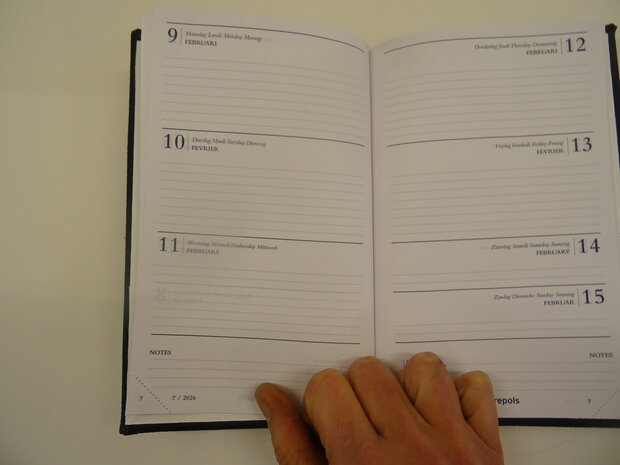 9 Maandag Lundi Monday Montag
FEBRUARI
10 Dinsdag Mardi Tuesday Dienstag
FEVRIER
11 Woensdag Mercredi Wednesday Mittwoch
FEBRUARY
NOTES
7
7 / 2026
Donderdag Jeudi Thursday Donnerstag 12
FEBRUARI
Vrijdag Vendredi Friday Freitag 13
FEVRIER
Zaterdag Samedi Saturday Samstag 14
FEBRUARY
Zondag Dimanche Sunday Sonntag 15
FEBRUAR
NOTES
repols
7